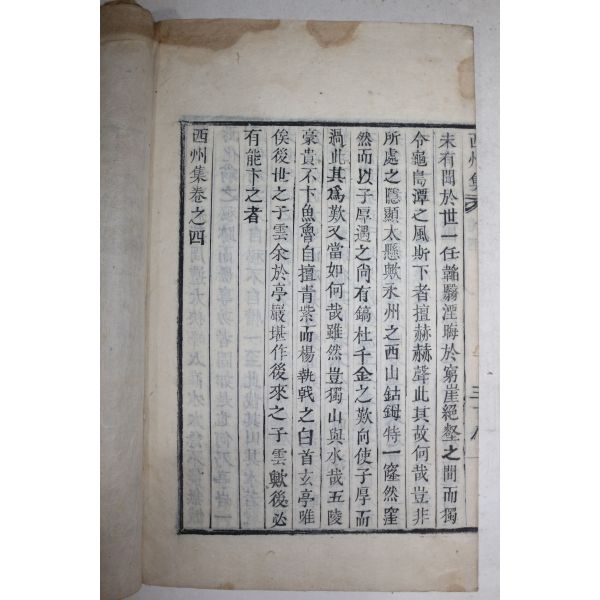 未有聞於世一任翰翳湮晦於窮崖絕壑之間而獨
令龜島潭之風斯下者擅赫赫聲此其故何哉豈非
所處之隱顯太懸歟永州之西山鈷鉧特一窿然窪
然而以子厚遇之尚有鎬杜千金之歎向使子厚而
過此其爲歎又當如何哉雖然豈獨山與水哉五陵
豪貴不卞魚魯自擅青紫而楊執戟之白首玄亭唯
俟後世之子雲余於亭巖堪作後來之子雲歟後必
有能卞之者
西州集卷之四